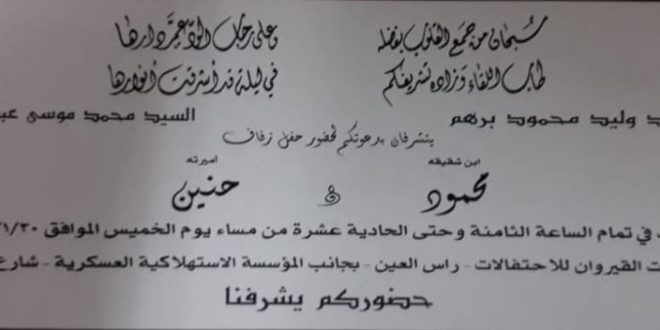 سبحان من جمع القلوب بفضله وعلى رحاب الود عمّر دارها
طاب اللقاء وزاده تشريفكم في ليلة قد أشرقت أنوارها
د وليد محمود برهم السيد محمد موسى عب
يتشرفان بدعوتكم لحضور حفل زفاف
ابن شقيقه اميرته
محمود & حنين
د في تمام الساعة الثامنة وحتى الحادية عشرة من مساء يوم الخميس الموافق ١/٣٠/
ت القيروان للاحتفالات - راس العين - بجانب المؤسسة الاستهلاكية العسكرية - شارع
حضوركم يشرفنا